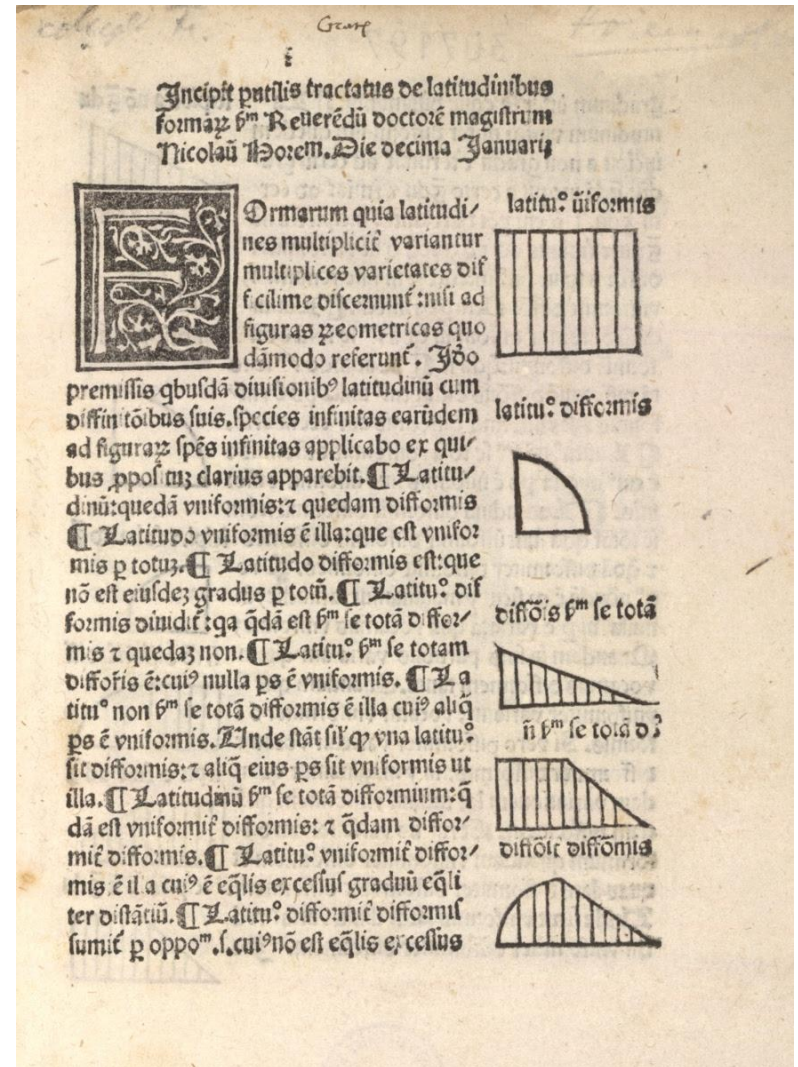 Incipit ꝑutilis tractatus de latitudinibus
formaꝝ ẜm Reuerēdū doctorē magistrum
Nicolaū Horem. Die decima Januarij
FOrmarum quia latitudi⸗
nes multipliciť variantur
multiplices varietates dif
ficilime discernunť: nisi ad
figuras geometricas quo
dāmodo referunť. Iḋo
premissis qbusdā diuisionibꝰ latitudinū cum
diffinitōibus suis. species infinitas earūdem
ad figuraꝝ spēs infinitas applicabo ex qui⸗
bus ꝓposituꝫ clarius apparebit. ¶ Latitu⸗
dinū: quedā vniformis: ⁊ quedam difformis
¶ Latitudo vniformis ē illa: que est vnifor
mis ꝑ totuꝫ. ¶ Latitudo difformis est: que
nō est eiusdeꝫ gradus ꝑ totū. ¶ Latituᵒ. dif
formis diuidiť: qa q̄dā est ẜm se totā differ⸗
mis ⁊ quedaꝫ non. ¶ Latituᵒ. ẜm se totam
difforīs ē: cuiꝰ nulla ꝑs ē vniformis. ¶ La
tituᵒ non ẜm se totā difformis ē illa cuiꝰ aliq̄
ꝑs ē vniformis. Unde stāt siľ ꝙ vna latituᵒ.
sit difformis: ⁊ aliq̄ eius ꝑs sit vniformis ut
illa. ¶ Latitudinū ẜm se totā difformium: q̄
dā est vniformiť difformis: ⁊ q̄dam diffor⸗
miť difformis. ¶ Latituᵒ. vniformiť diffor⸗
mis ē illa cuiꝰ ē eq̄lis excessus graduū eq̄li
ter distātiū. ¶ Latituᵒ. difformiť difformis
sumiť ꝑ oppoᵐ. s. cuiꝰ nō est eq̄lis excessus
latituᵒ. ūiformis
latituᵒ. difformis
diffōis ẜm se totā
n̄ ẜm se totā d
diffōiť diffōmis